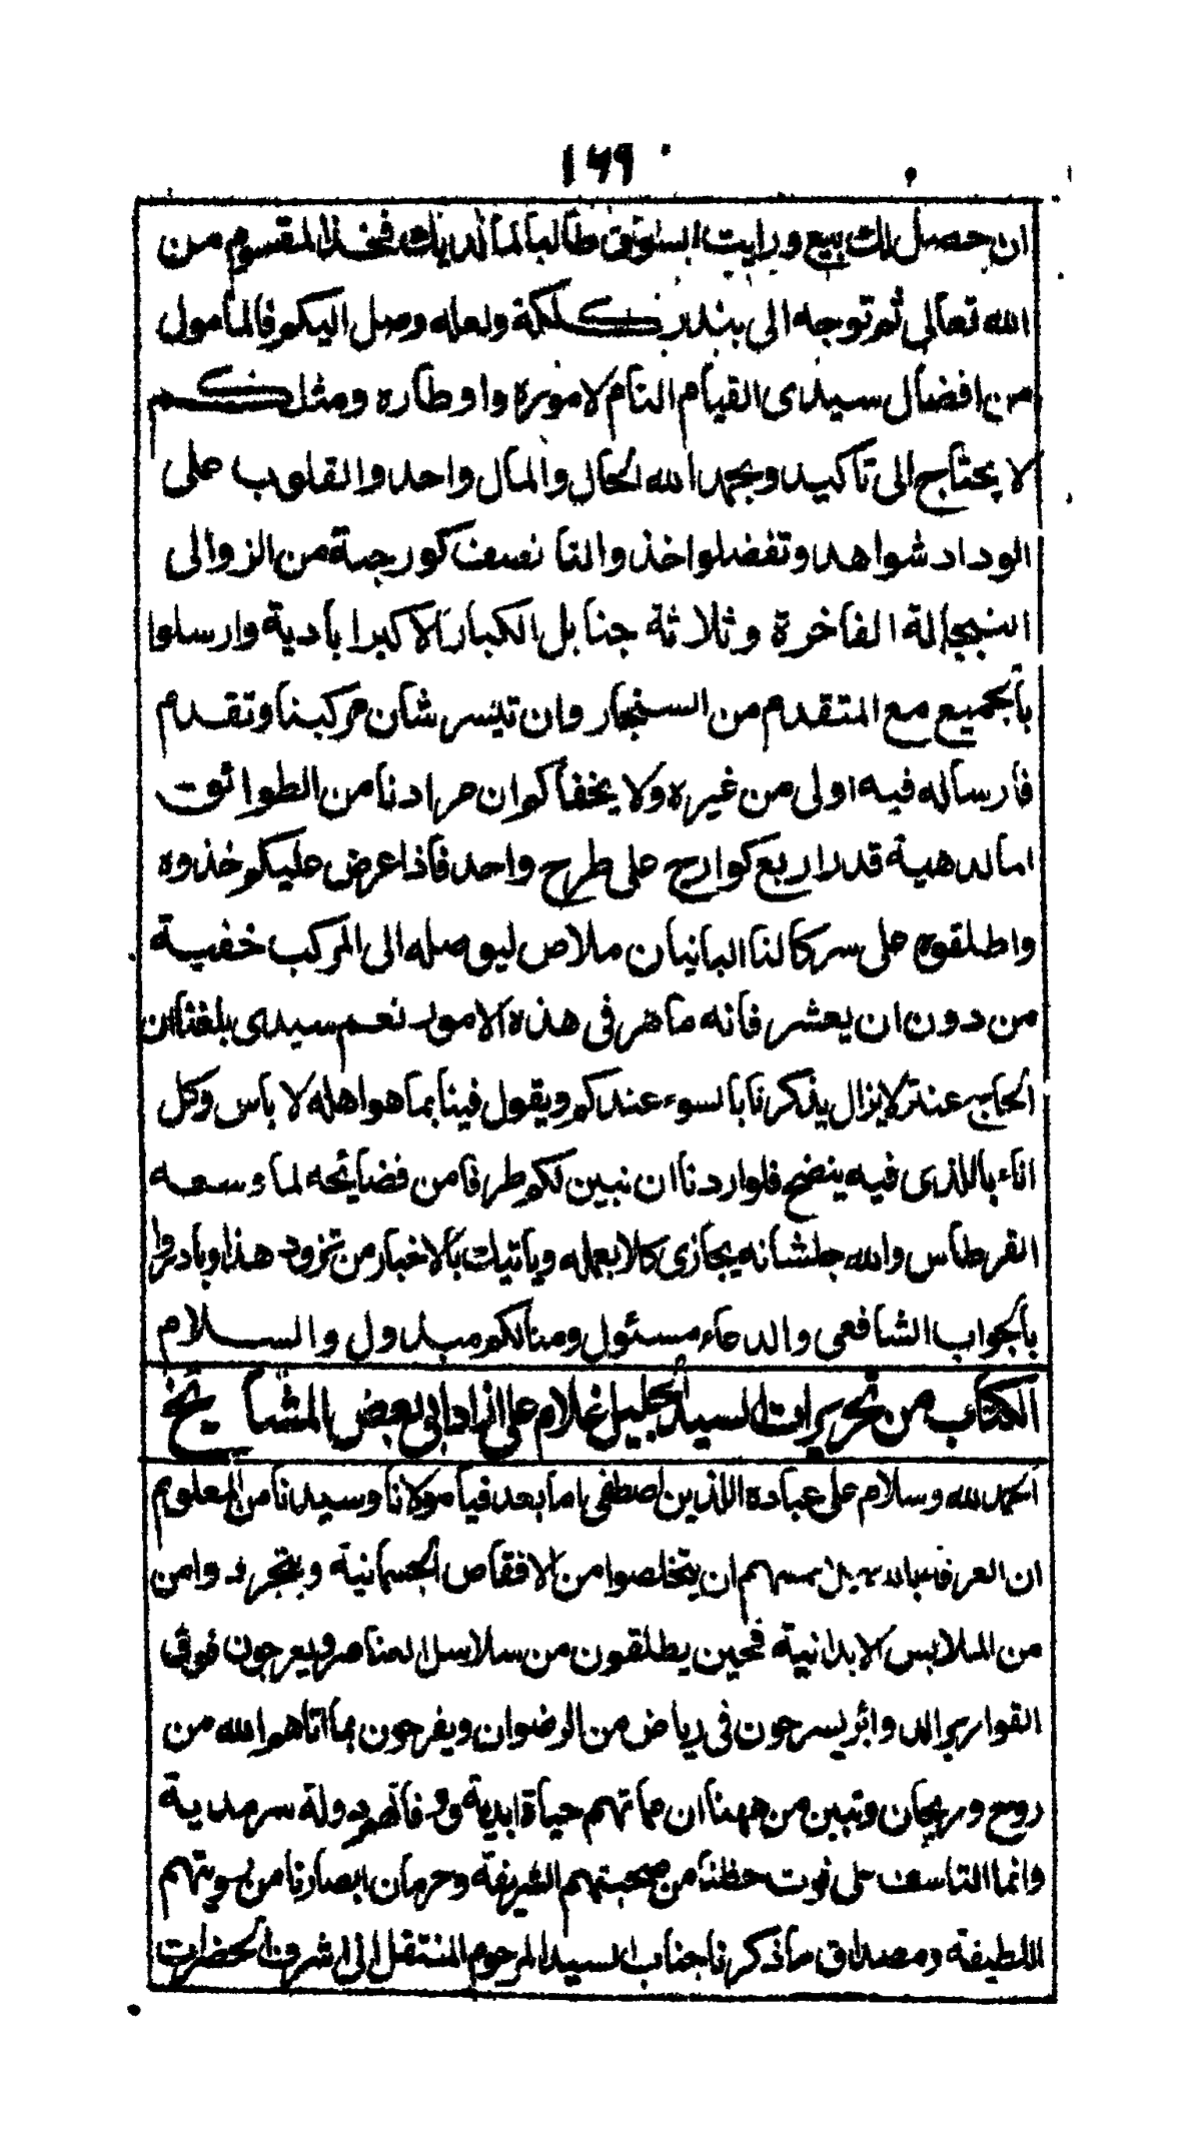 ١٦٩
ان حصل لك بيع ورايت السوق طالبا لما لديك فخذ المقسوم من
الله تعالى ثم توجه الى بندر كلكتة ولعله وصل اليكم فالمأمول
من افضال سيدى القيام التام لاموره واوطاره ومثلكم
لا يحتاج الى تاكيد وبحمد الله الحال والمال واحد والقلوب على
الوداد شواهد وتفضلوا خذ والنا نصف كورجة من الزوالى
البنجالة الفاخرة وثلاثة جنابل الكبار الاكبر ابادية وارسلوا
بالجميع مع المتقدم من السنجار وان تيسر شان مركبنا وتقدم
فارساله فيه اولى من غيره ولا يخفاكم ان مرادنا من الطوائق
اما لدهية قدر اربع كوارج على طرح واحد فاذا عرض عليكم خذوه
واطلقوه على سركالنا البانيان ملاص ليوصله الى المركب خفية
من دون ان يعشر فانه ماهر فى هذه الامور نعم سيدى بلغنا ان
الحاج عنتر لا يزال يذكرنا بالسوء عندكم ويقول فينا بما هو اهله لا باس وكل
اناء باللذى فيه ينضح فلو اردنا ان نبين لكم طرفا من فضايحه لما وسعه
القرطاس والله جلشانه يجازى كلا بعمله وياتيك بالاخبار من تزود هذا وبادروا
بالجواب الشافعى والدعاء مسئول ومنا لكم مبذول والسلام
الكتاب من تحريرات السيد الجليل غلام على ازاد الى بعض المشايخ
الحمد لله وسلام على عباده اللذين اصطفى اما بعد فيا مولانا وسيدنا من المعلوم
ان العرفا ان يتخلصوا من الاقفاص الجسمانية ويتجردوا من
من الملابس الابدانية فحين يطلقون من سلاسل العناصر ويعرجون فوق
القوارير الدوائر يسرحون فى رياض من الرضوان ويفرحون بما اتاهم الله من
روح وريحان وتبين من ههنا ان مماتهم حياة ابدية ووفاتهم دولة سرمدية
وانما التاسف على فوت حظنا من صحبتهم الشريفة وحرمان ابصارنا من رويتهم
اللطيفة ومصداق ما ذكرنا جناب السيد المرحوم المنتقل الى اشرف الحضرات